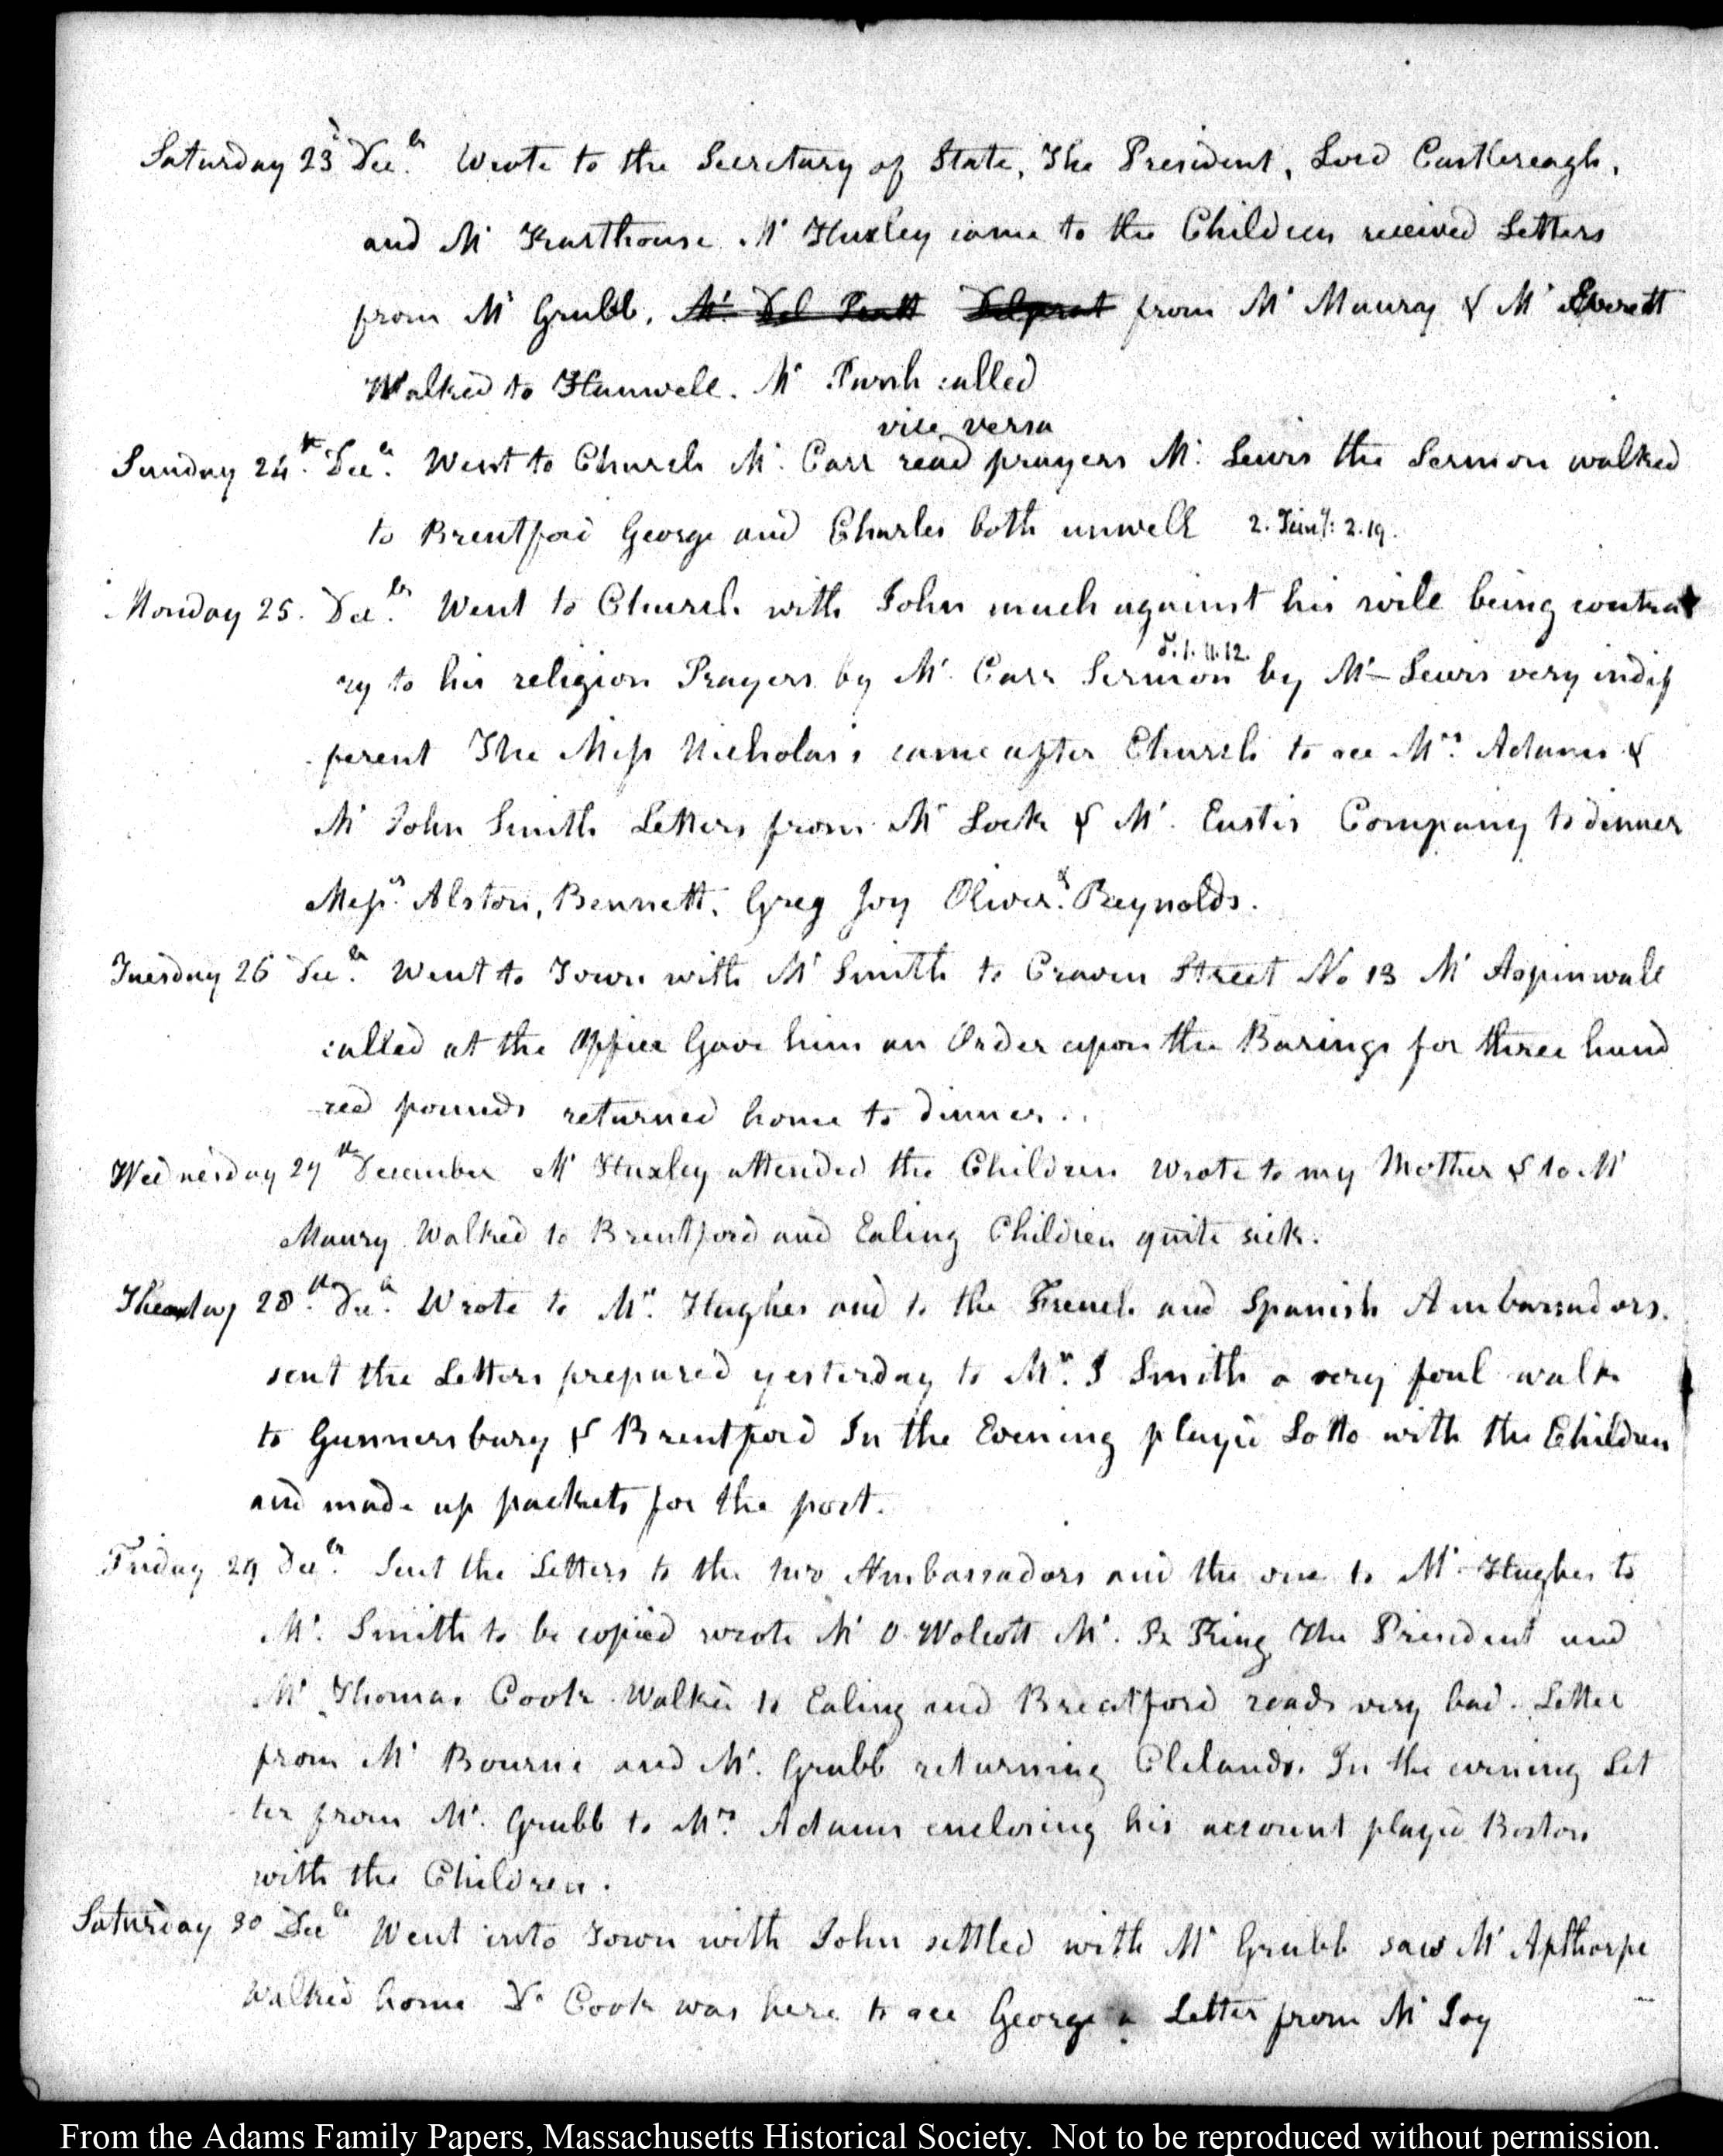 Saturday 23d Decbr. Wrote to the Secretary of State, The President, Lord Castlereagh,
and Mr Fursthouse Mr Huxley came to the Children received Letters
from Mr Grubb, Mr. Del Pratt Delprat from Mr Maury & Mr Everett
Walked to Hanwell. Mr Parish called
vice versa
Sunday 24th. Decr. Went to Church Mr. Carr read prayers Mr. Lewis the Sermon walked
to Brentford George and Charles both unwell 2. Timy: 2.19.
Monday 25. Decbr. Went to Church with John much against his will being contra
T. 1. 11. 12.
ry to his religion Prayers by Mr. Carr Sermon by Mr Lewis very indif
ferent The Miss Nicholas's came after Church to see Mrs. Adams &
Mr John Smith Letters from Mr Lock & Mr. Eustis Company to dinner
Messrs. Alston, Bennett, Greg Joy Oliver. & Reynolds.
Tuesday 26 Decbr. Went to Town with Mr Smith to Craven Street No 13 Mr Aspinwall
called at the Office Gave him an Order upon the Barings for three hund
red pounds returned home to dinner..
Wednesday 27th December Mr Huxley attended the Children Wrote to my Mother & to Mr
Maury Walked to Brentford and Ealing Children quite sick.
Thursday 28th. Decr. Wrote to Mr. Hughes and to the French and Spanish Ambassadors.
sent the Letters prepared yesterday to Mr. J Smith a very foul walk
to Gunnersbury & Brentford In the Evening played Lotto with the Children
and made up packets for the post.
Friday 29 Decbr. Sent the Letters to the two Ambassadors and the one to Mr. Hughes to
Mr. Smith to be copied wrote Mr O Wolcott Mr. R King The President and
Mr Thomas Cook Walked to Ealing and Brentford roads very bad. Letter
from Mr Bourne and Mr. Grubb returning Clelands. In the evening Let
ter from Mr. Grubb to Mrs. Adams enclosing his account played Boston
with the Children.
Saturday 30 Decbr Went into Town with John settled with Mr Grubb saw Mr Apthorpe
Walked home Dr Cook was here to see George a Letter from Mr Joy
From the Adams Family Papers, Massachusetts Historical Society. Not to be reproduced without permission.